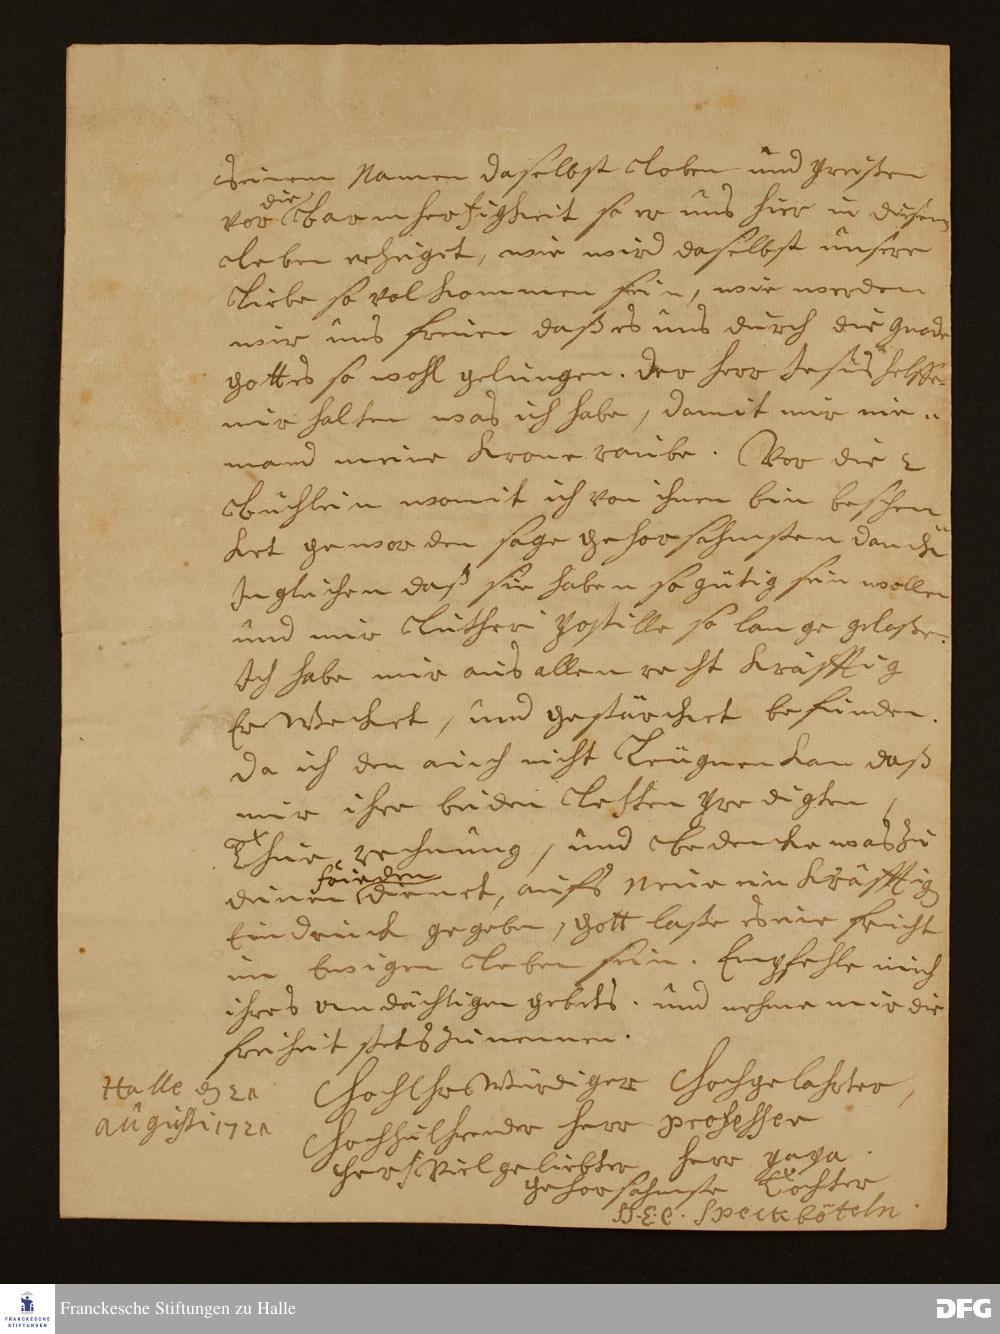 seinem Namen daselbst Loben und preißen
vor die Barmhertzigkeit so er uns hier in diesem
Leben erzeiget, wie wird daselbst unsere
Liebe so volkommen sein, wie werden
wir uns freuen daß es uns durch die gnade
gottes so wohl gelungen. der herr Jesus helffe
mir halten was ich habe, damit mir nie-
mand meine Krone raube. Vor die 2
Büchlein womit ich von ihnen bin beschen
cket geworden sage gehorsahmsten dancke
Ingleichen daß sie haben so gütig sein wollen
und mir Lutheri postille so lange gelaßen.
Ich habe mir aus allen recht kräfftig
Erwecket, und gestärcket befunden.
Da ich den auch nicht Leügnen kan daß
mir ihre beiden Letzten predigten,
Thue rechnung, und Bedencke was zu
deinen frieden dienet, aufs Neue ein kräfftig
Eindruck gegeben, gott laße es eine frucht
im Ewigen Leben sein. Empfehle mich
ihres andächtigen gebets. und nehme mir die
freiheit stets zu nennen.
Halle d 21
augusti 1721
HochEhrWürdiger Hochgelahrter,
Hochzuehrender herr professer
hertz Vielgeliebter herr papa.
gehorsahmste Tochter
S. E. C. Speckböteln.
Franckesche Stiftungen zu Halle
FRANCKESCHE
STIFTUNGEN
DFG